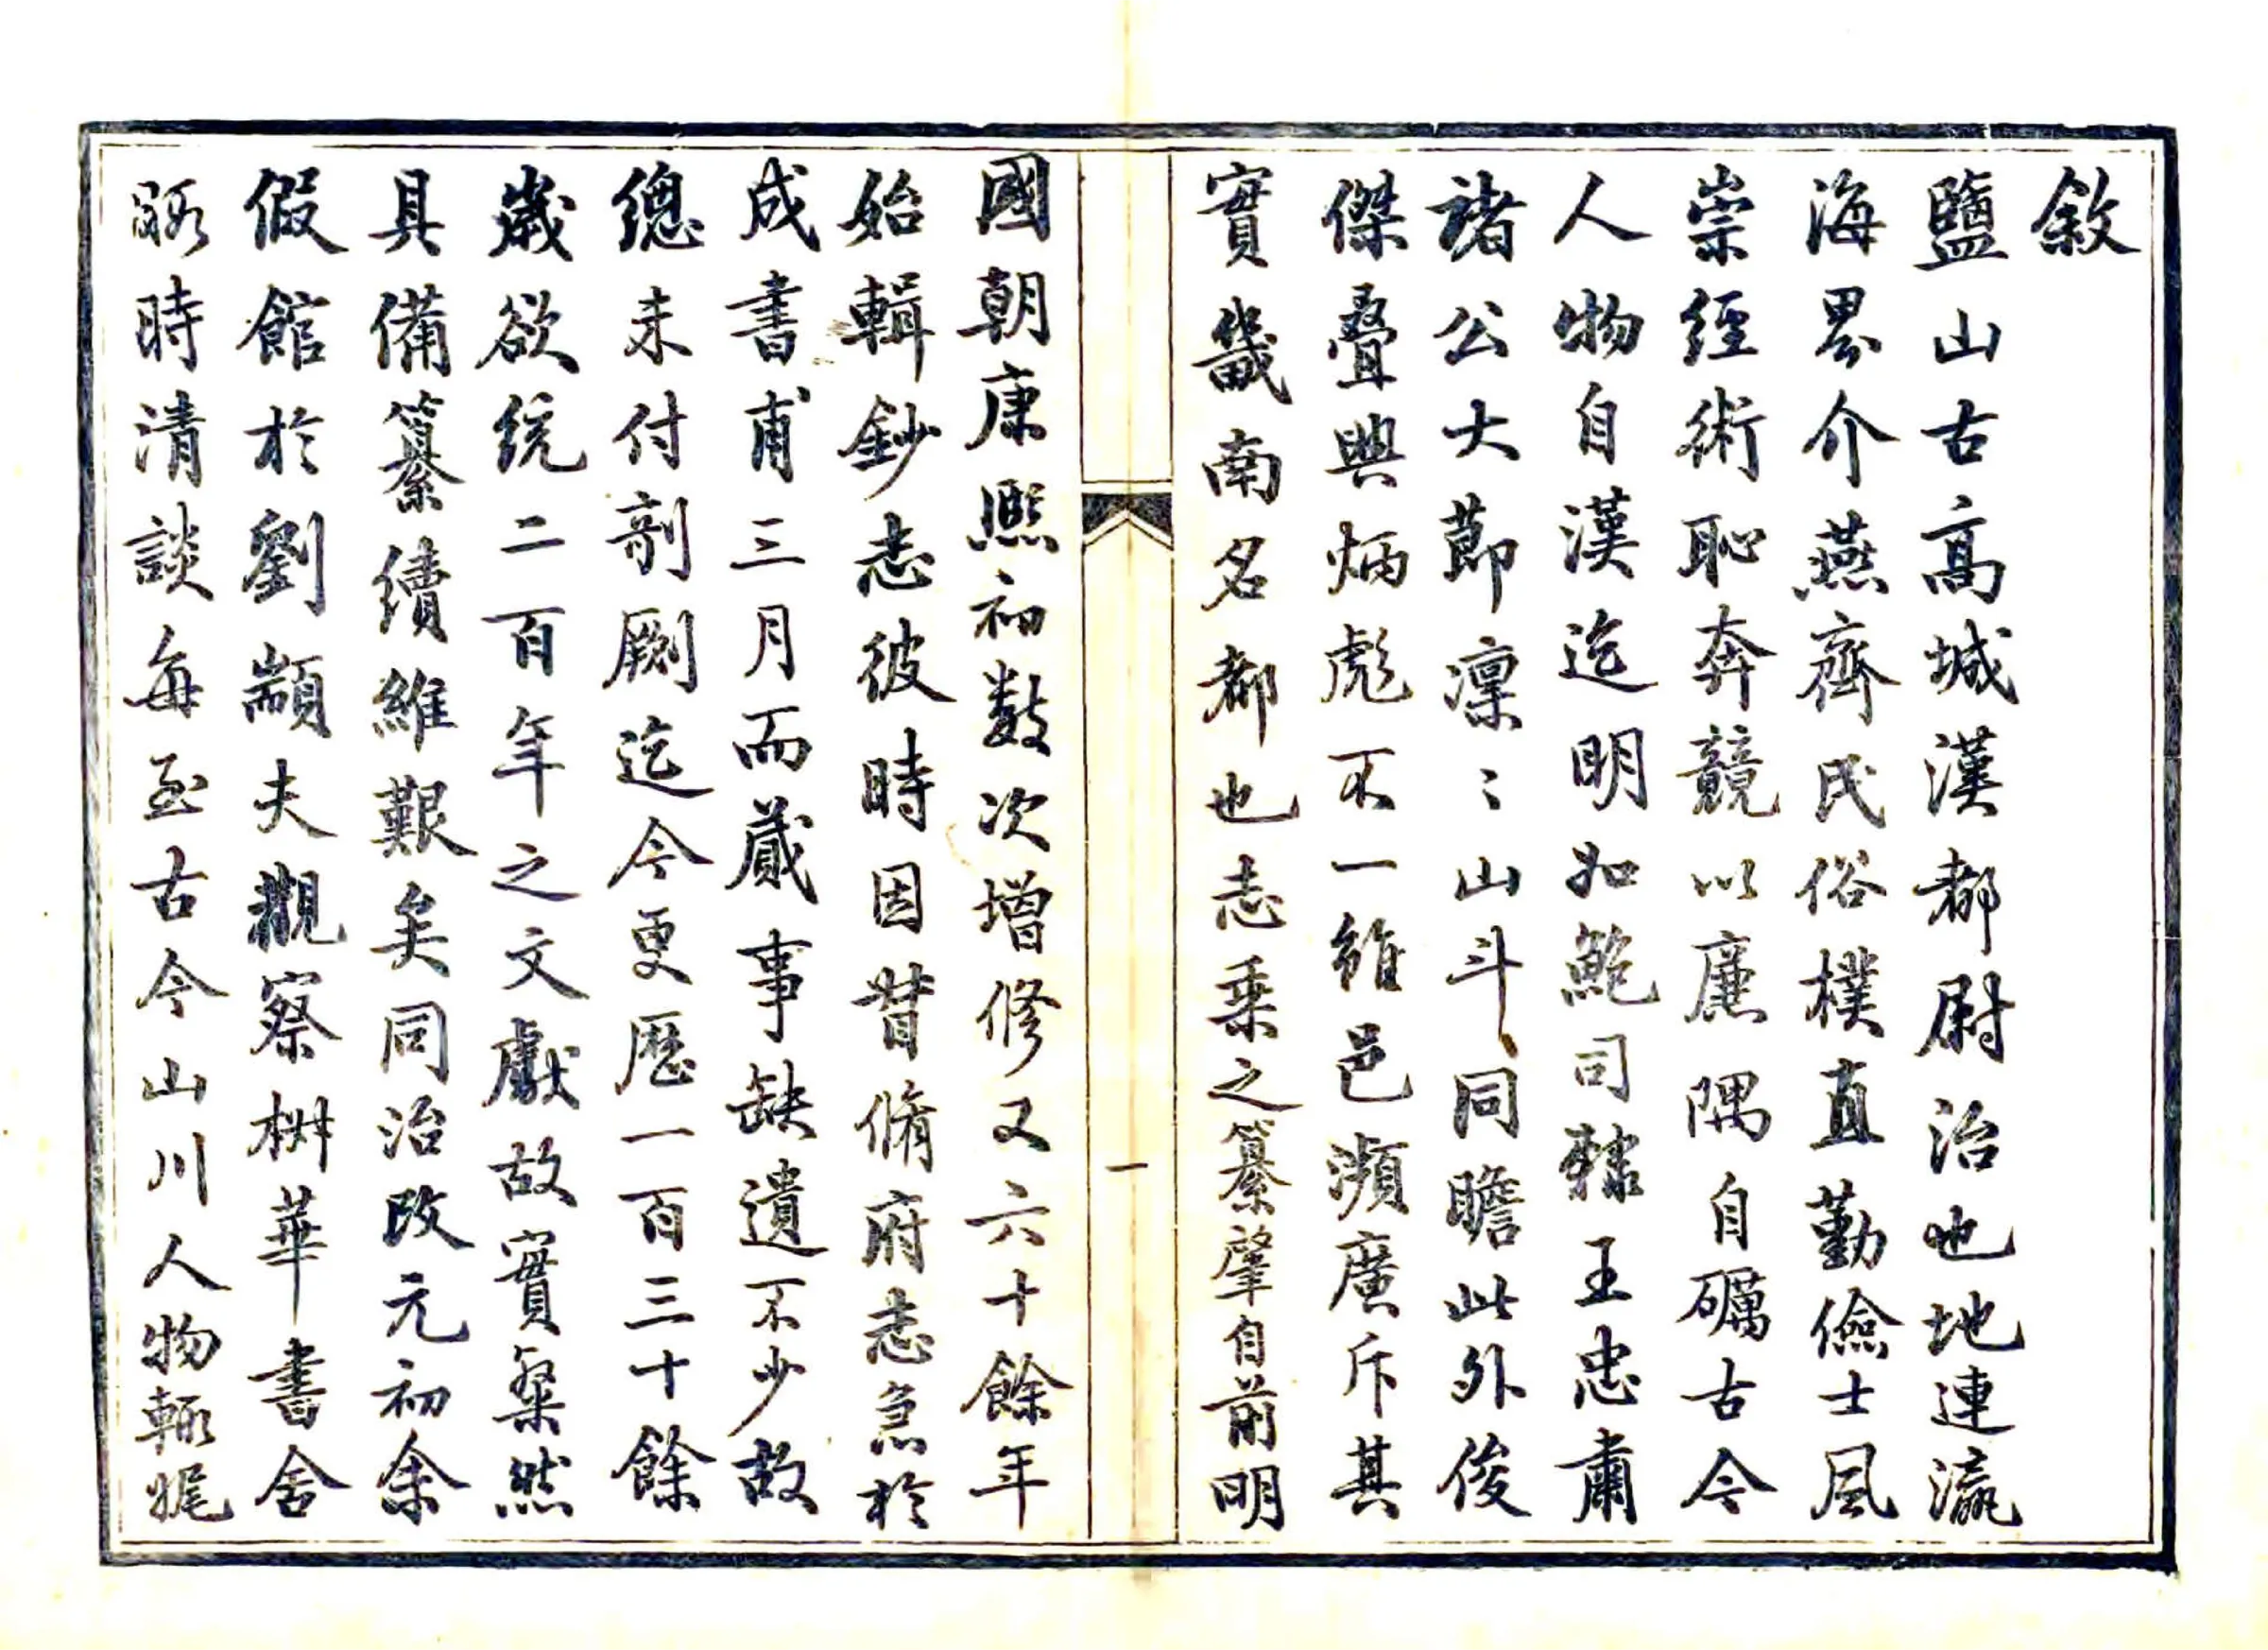 敘
鹽山古高城漢都尉治也地連瀛
海界介燕齊民俗樸直勤儉士風
崇經術恥奔競以廉隅自礪古今
人物自漢迄明如鮑司隸王忠肅
諸公大節凜〻山斗同瞻此外俊
傑疊興炳彪不一維邑瀕廣斥其
實畿南名都也志乘之纂肇自前明
一
國朝康熙初數次增修又六十餘年
始輯鈔志彼時因昔脩府志急於
成書甫三月而蕆事缺遺不少故
總未付剞劂迄今更歷一百三十餘
歲欲統二百年之文獻故實粲然
具備纂續維艱矣同治改元初余
假館於劉顓夫觀察樹華書舍
暇時清談每至古今山川人物輒娓